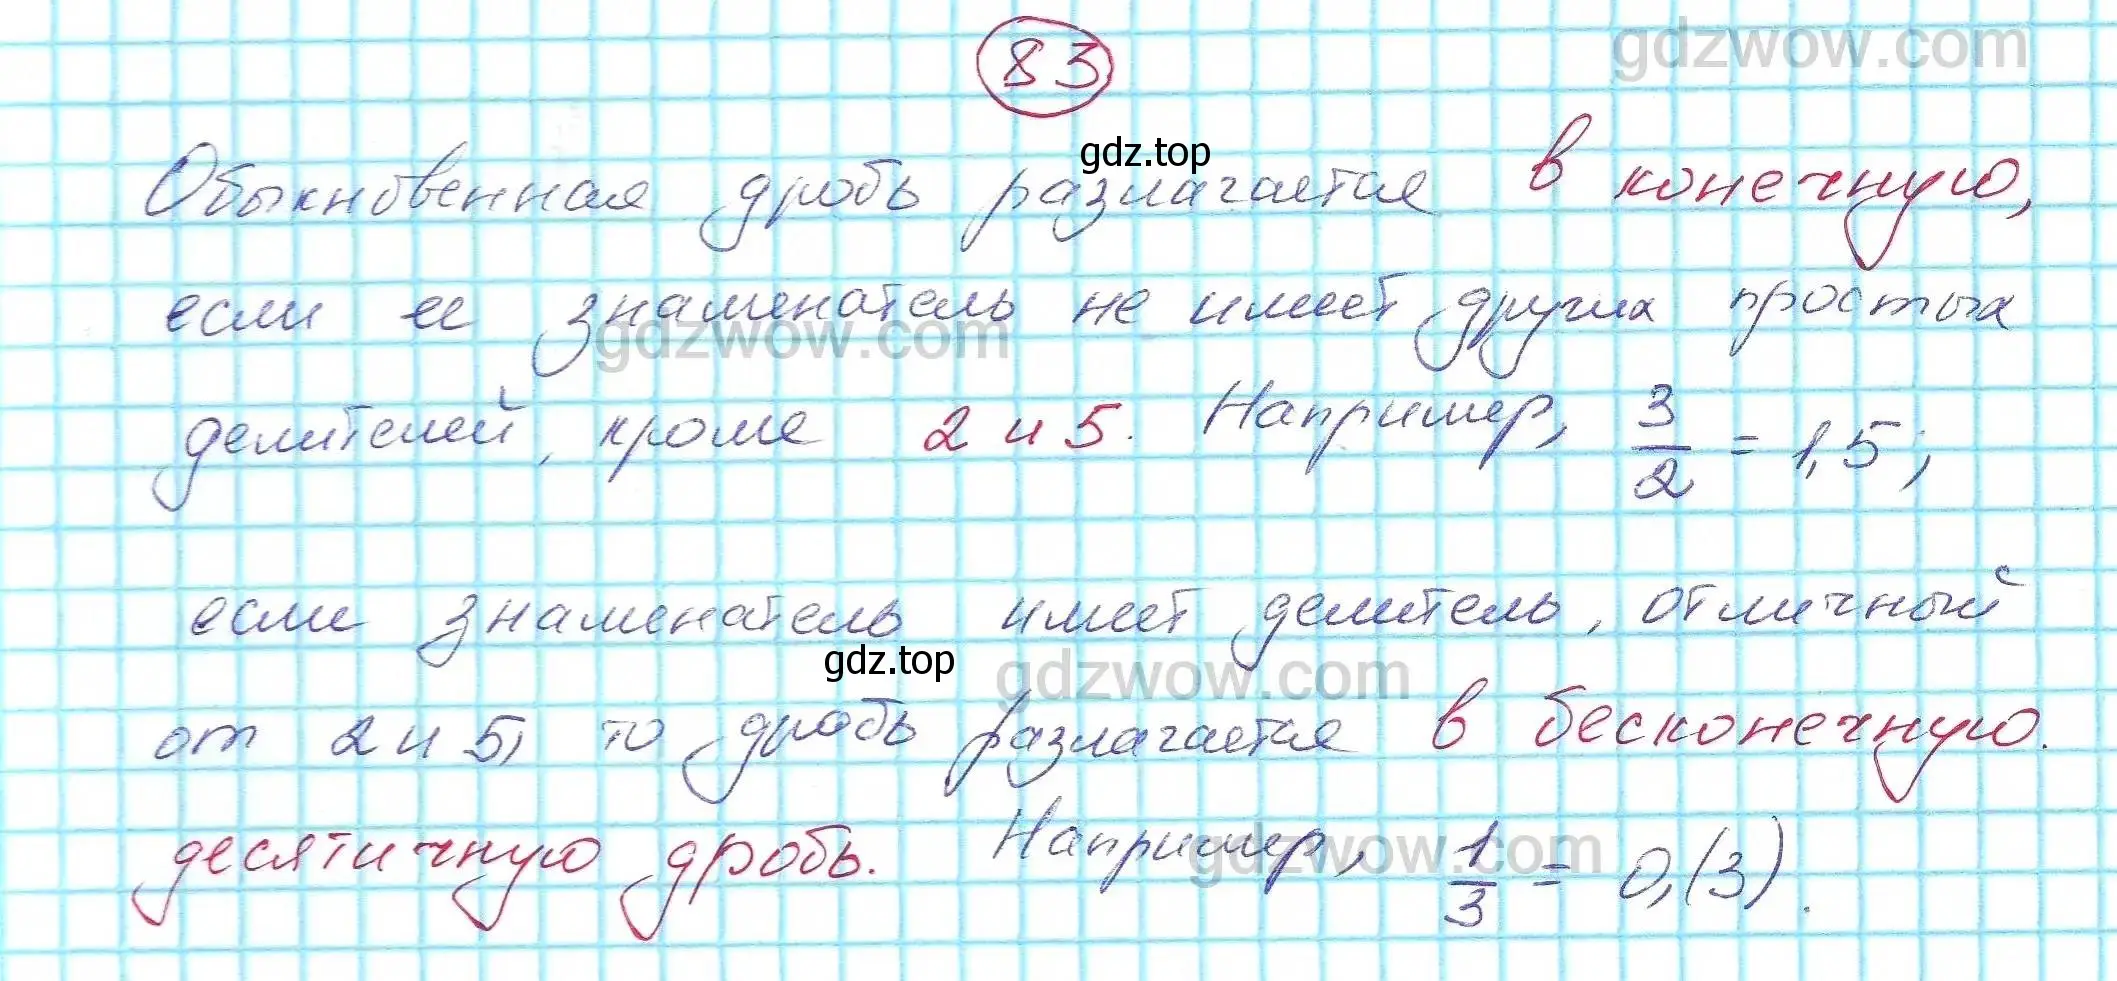 83
gdzwow.com
gdz.top
Обыкновенная дробь разлагается в конечную,
если ее знаменатель не имеет других простых
gdzwow.com
делителей, кроме 2 и 5. Например, 3/2 = 1,5;
если знаменатель имеет делитель, отличный
gdz.top
gdzwow.com
от 2 и 5, то дробь разлагается в бесконечную.
десятичную дробь. Например, 1/3 = 0,(3).
gdzwow.com